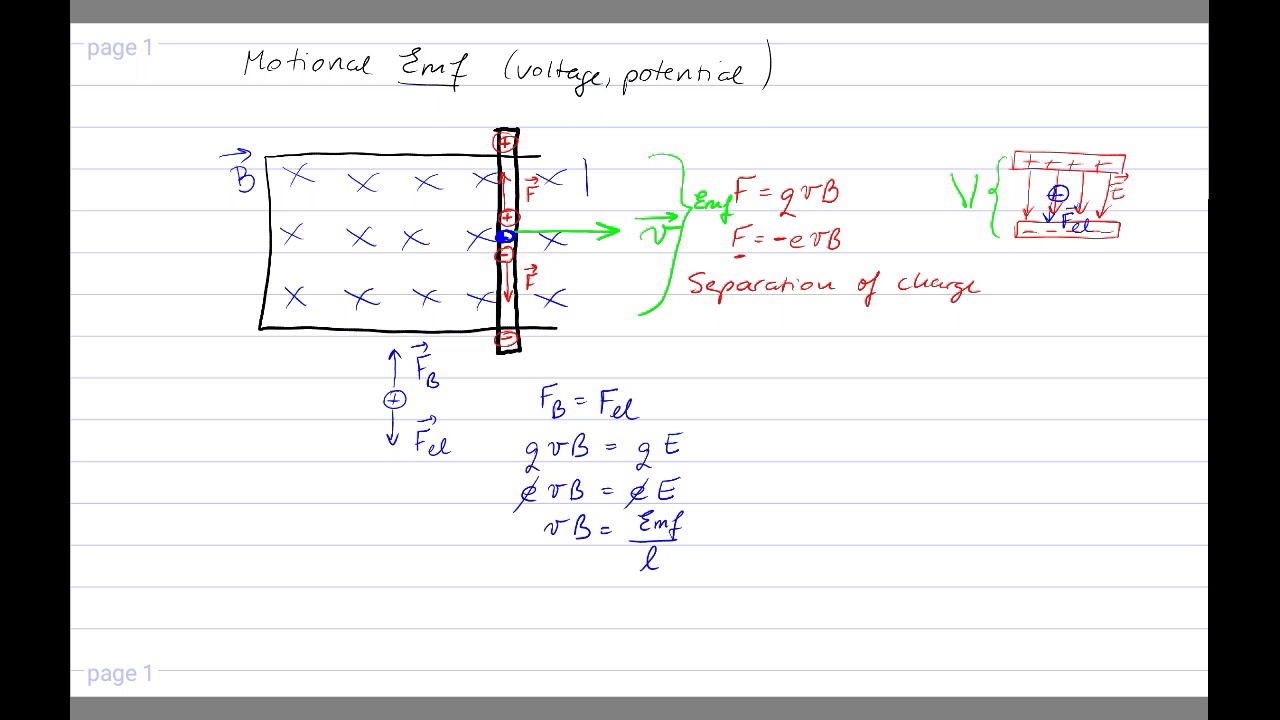 page 1
Motional Emf (voltage, potential)
B
+
F
+
-
F
-
v
Emf
F = qvB
F = -evB
Separation of charge
V
+ + + +
+
E
Fel
- - - -
FB
+
Fel
FB = Fel
qvB = qE
evB = eE
vB = Emf
l
page 1